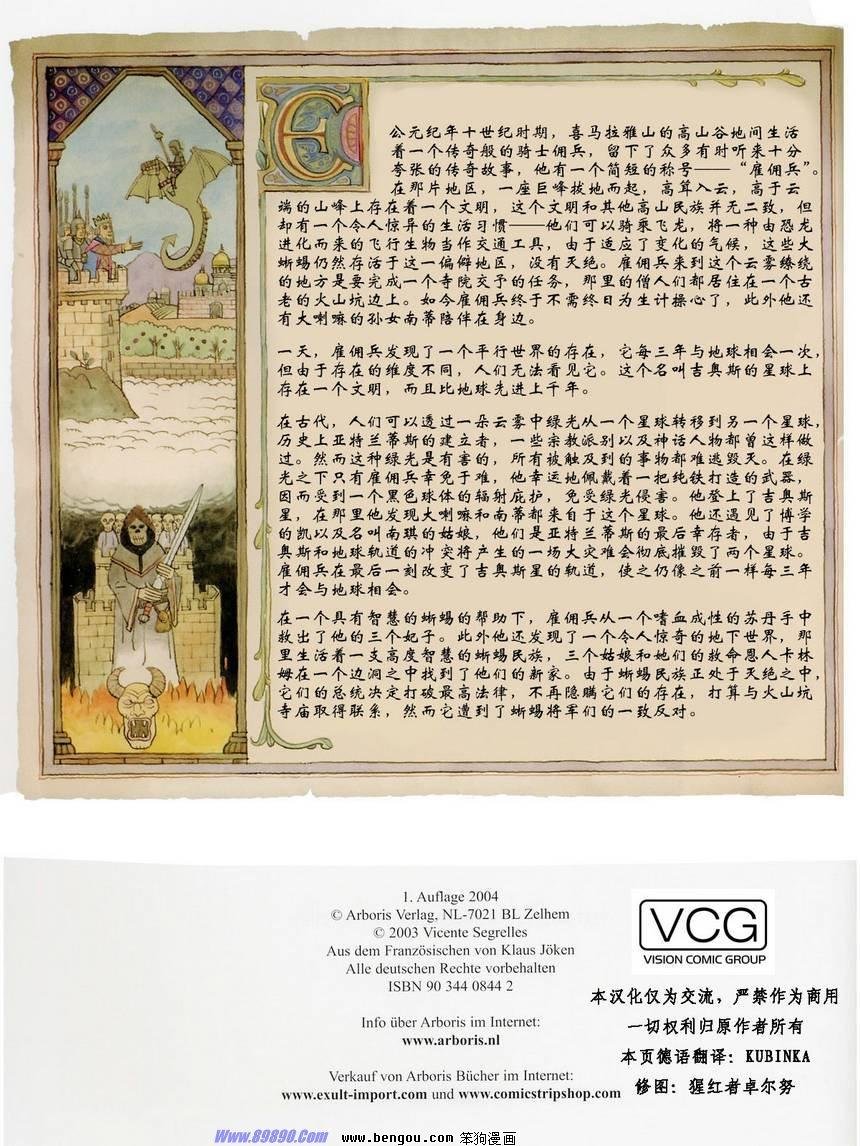 公元纪年十世纪时期，喜马拉雅山的高山谷地间生活
着一个传奇般的骑士佣兵，留下了众多有时听来十分
夸张的传奇故事，他有一个简短的称号——“雇佣兵”。
在那片地区，一座巨峰拔地而起，高耸入云，高于云
端的山峰上存在着一个文明，这个文明和其他高山民族并无二致，但
却有一个令人惊异的生活习惯——他们可以骑乘飞龙，将一种由恐龙
进化而来的飞行生物当作交通工具，由于适应了变化的气候，这些大
蜥蜴仍然存活于这一偏僻地区，没有灭绝。雇佣兵来到这个云雾缭绕
的地方是要完成一个寺院交予的任务，那里的僧人们都居住在一个古
老的火山坑边上。如今雇佣兵终于不需终日为生计操心了，此外他还
有大喇嘛的孙女南蒂陪伴在身边。
一天，雇佣兵发现了一个平行世界的存在，它每三年与地球相会一次，
但由于存在的维度不同，人们无法看见它。这个名叫吉奥斯的星球上
存在一个文明，而且比地球先进上千年。
在古代，人们可以透过一朵云雾中绿光从一个星球转移到另一个星球，
历史上亚特兰蒂斯的建立者，一些宗教派别以及神话人物都曾这样做
过。然而这种绿光是有害的，所有被触及到的事物都难逃毁灭。在绿
光之下只有雇佣兵幸免于难，他幸运地佩戴着一把纯铁打造的武器，
因而受到一个黑色球体的辐射庇护，免受绿光侵害。他登上了吉奥斯
星，在那里他发现大喇嘛和南蒂都来自于这个星球。他还遇见了博学
的凯以及名叫南琪的姑娘，他们是亚特兰蒂斯的最后幸存者，由于吉
奥斯和地球轨道的冲突将产生的一场大灾难会彻底摧毁了两个星球。
雇佣兵在最后一刻改变了吉奥斯星的轨道，使之仍像之前一样每三年
才会与地球相会。
在一个具有智慧的蜥蜴的帮助下，雇佣兵从一个嗜血成性的苏丹手中
救出了他的三个妃子。此外他还发现了一个令人惊奇的地下世界，那
里生活着一支高度智慧的蜥蜴民族，三个姑娘和她们的救命恩人卡林
姆在一个边洞之中找到了他们的新家。由于蜥蜴民族正处于灭绝之中，
它们的总统决定打破最高法律，不再隐瞒它们的存在，打算与火山坑
寺庙取得联系，然而它遭到了蜥蜴将军们的一致反对。
1. Auflage 2004
© Arboris Verlag, NL-7021 BL Zelhem
© 2003 Vicente Segrelles
Aus dem Französischen von Klaus Jöken
Alle deutschen Rechte vorbehalten
ISBN 90 344 0844 2
Info über Arboris im Internet:
www.arboris.nl
Verkauf von Arboris Bücher im Internet:
www.exult-import.com und www.comicstripshop.com
VCG
VISION COMIC GROUP
本汉化仅为交流，严禁作为商用
一切权利归原作者所有
本页德语翻译：KUBINKA
修图：猩红者卓尔努
Www.89890.Com
www.bengou.com 笨狗漫画